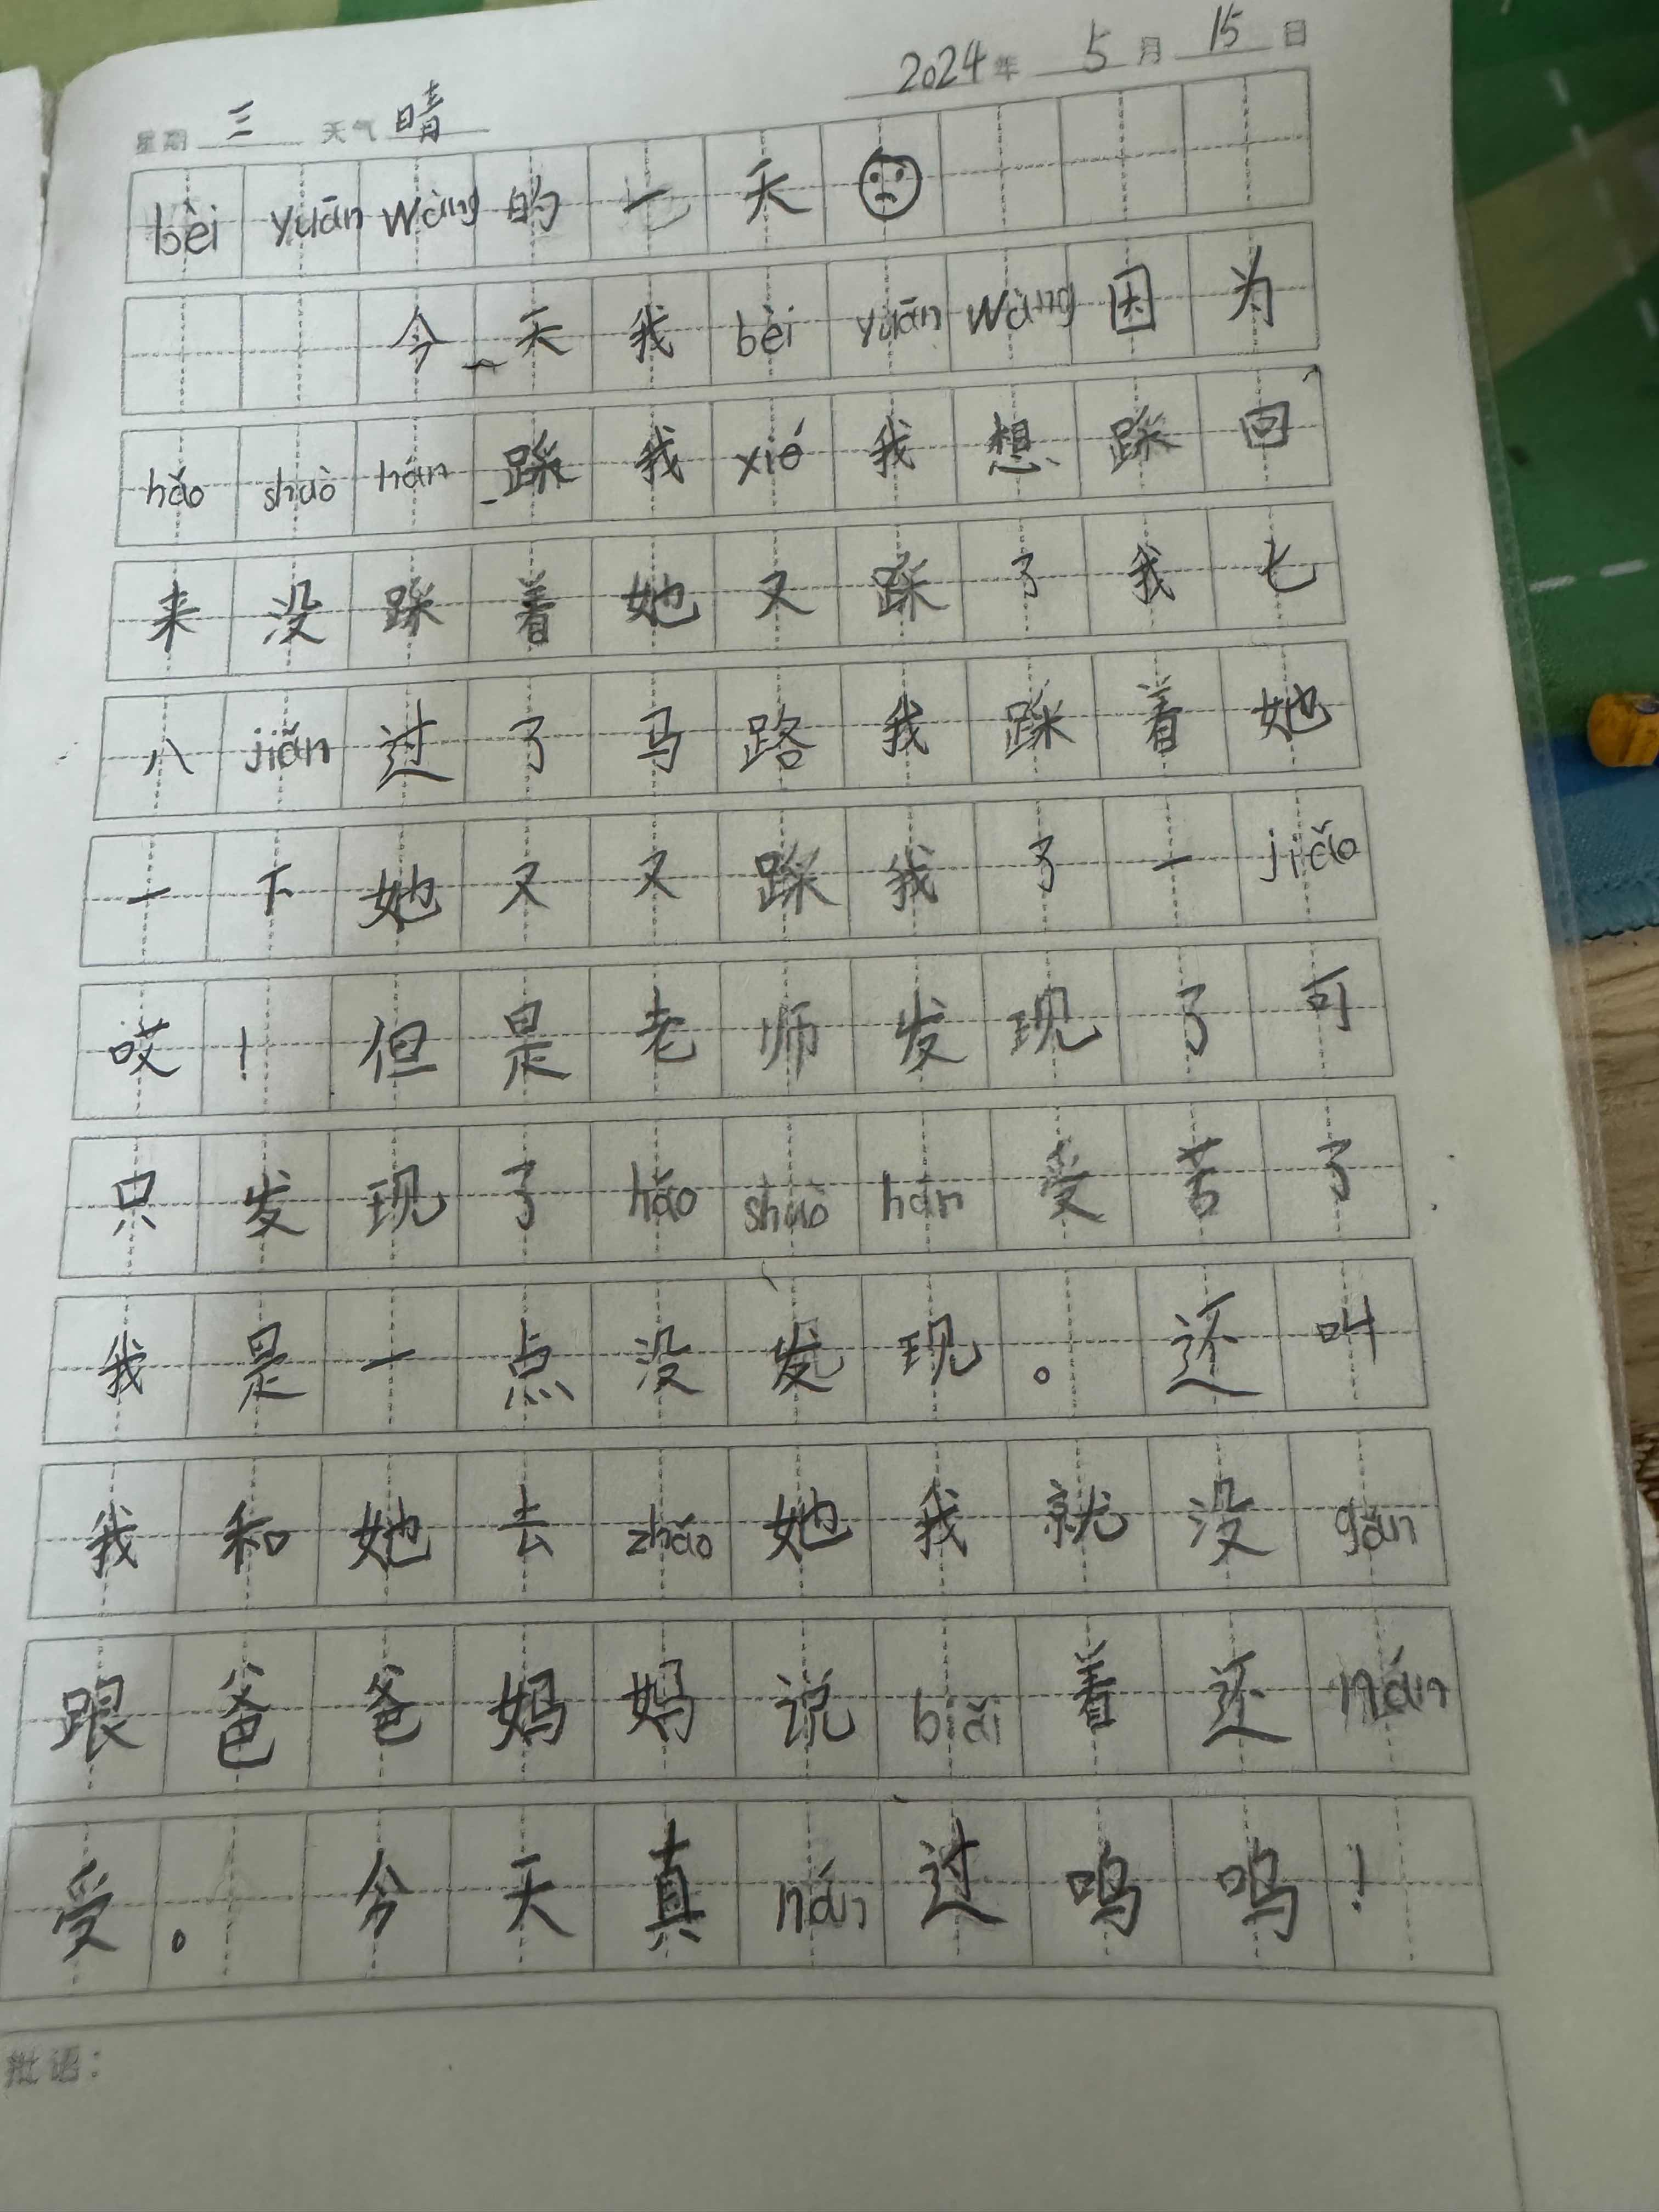 2024年 5月 15日
星期 三 天气 晴
bèi yuān wàng 的一天
今天我 bèi yuān wàng 因为
hǎo shuò hán 踩我 xié 我想踩回
来没踩着她又踩了我七
八 jiǎn 过了马路我踩着她
一下她又又踩我了一 jiǎo
哎！但是老师发现了可
只发现了 hǎo shuò hán 受苦了
我是一点没发现。还叫
我和她去 zhǎo 她我就没 gǎn
跟爸爸妈妈说 biāi 着还 nán
受。今天真 nán 过呜呜！
批语：